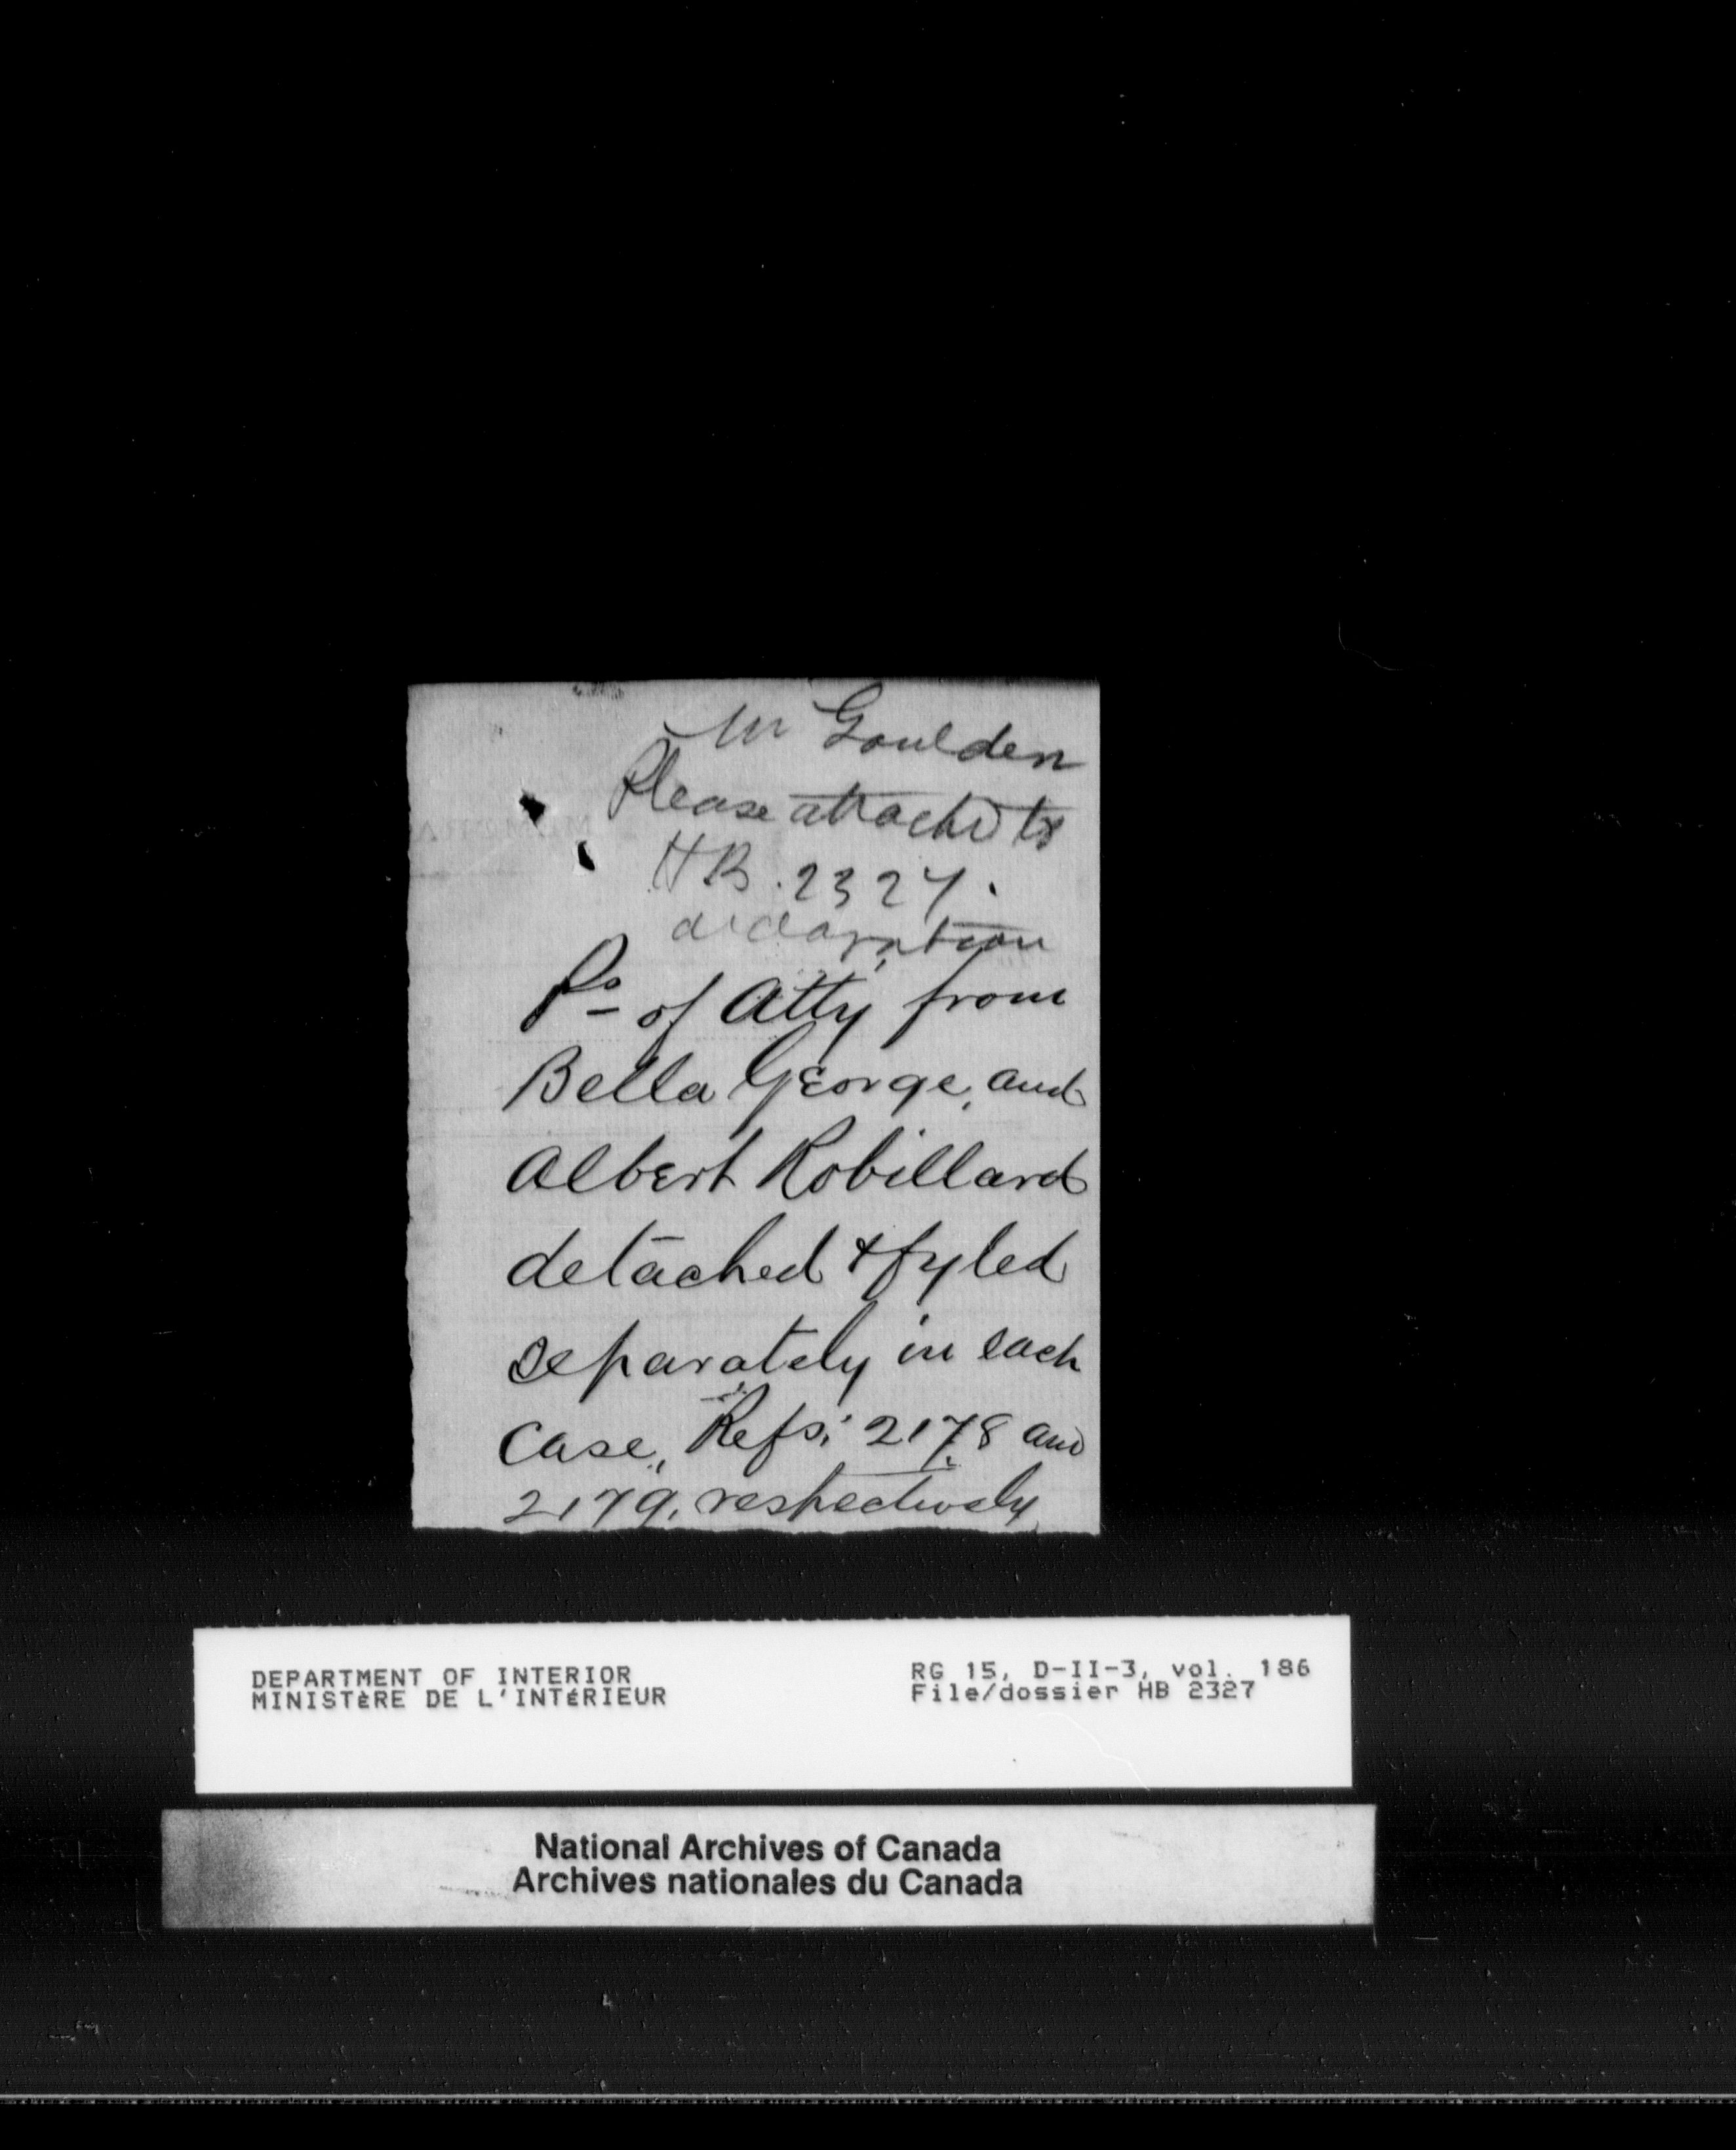 Mr Goulden
Please attach to
HB. 2327.
declaration
Ps of Atty from
Bella George, and
Albert Robillard
detached & fyled
separately in each
case, Refs: 2178 and
2179, respectively
DEPARTMENT OF INTERIOR
MINISTÈRE DE L'INTÉRIEUR
RG 15, D-II-3, vol. 186
File/dossier HB 2327
National Archives of Canada
Archives nationales du Canada